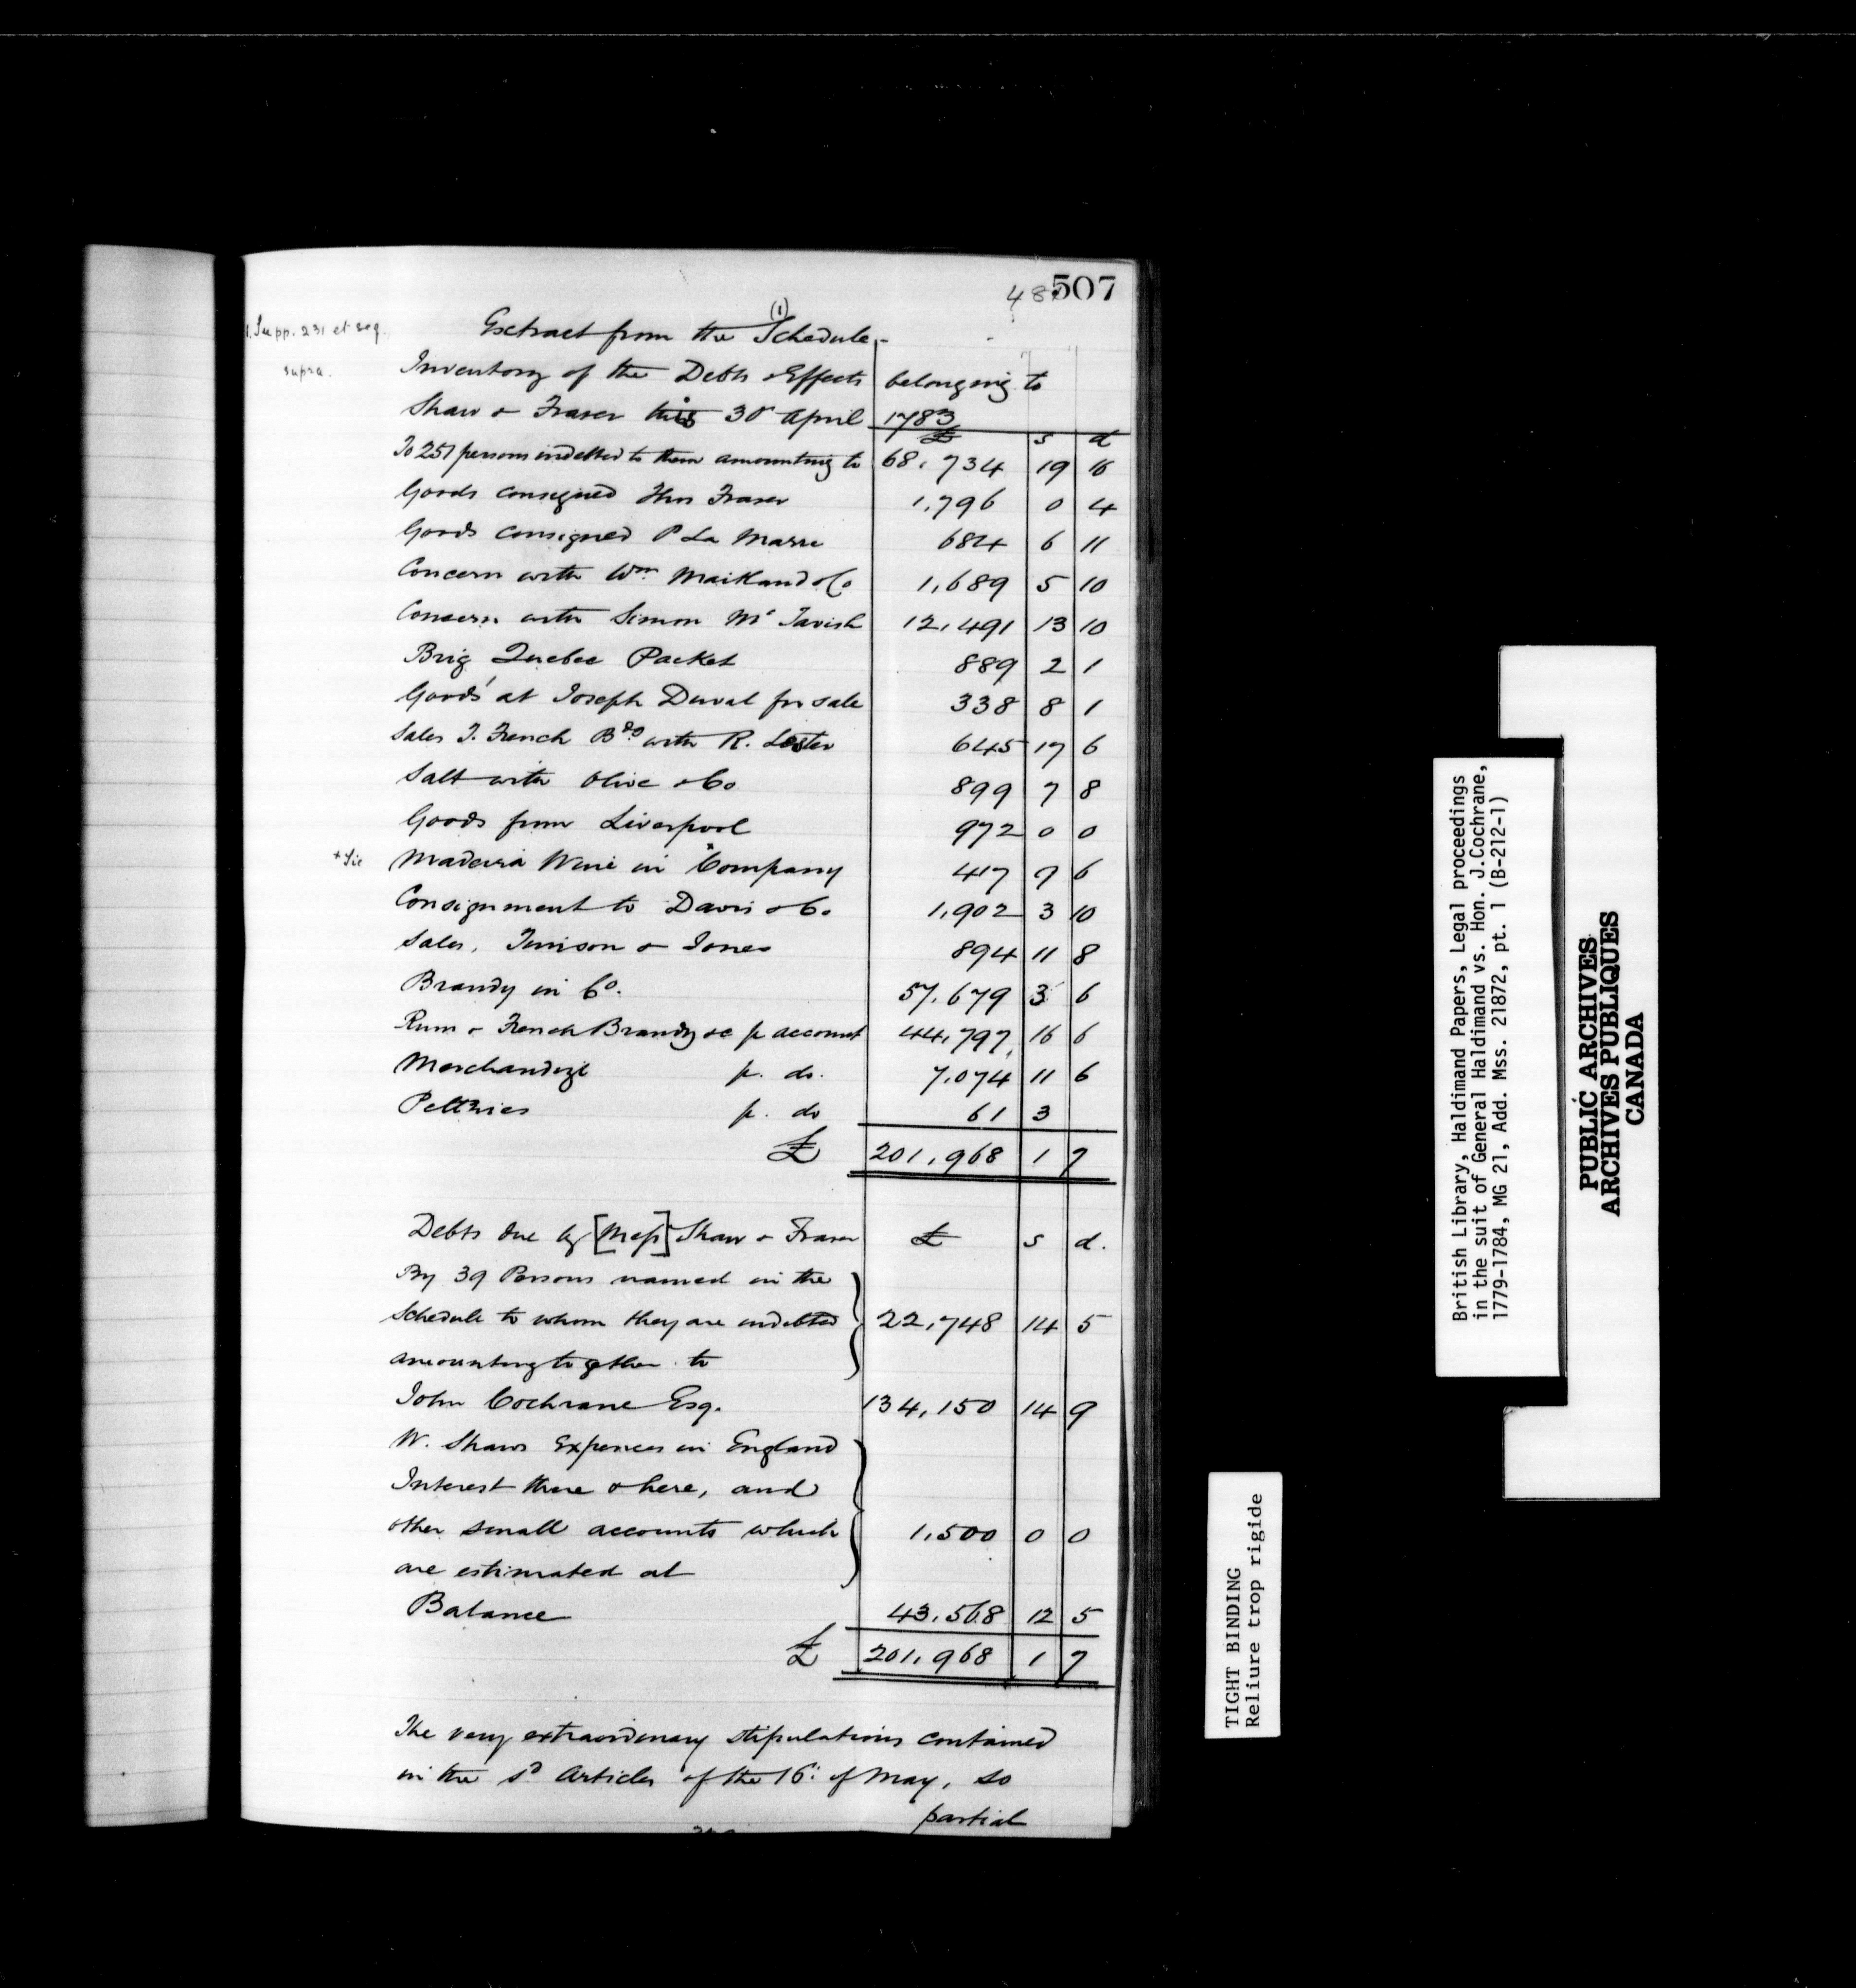 507
48
(1)
1. Supp. 231 et seq.
supra.
Extract from the Schedule.-
Inventory of the Debts & Effects belonging to
Shaw & Fraser this 30 April 1783
£ s d
To 257 persons indebted to them amounting to 68,734 19 16
Goods consigned Thos Fraser 1,796 0 4
Goods consigned P La Marre 684 6 11
Concern with Wm. Maitland & Co 1,689 5 10
Concern with Simon Mc Tavish 12,491 13 10
Brig Quebec Packet 889 2 1
Goods at Joseph Duval for sale 338 8 1
Sales J. French Bdo with R. Lester 645 17 6
Salt with Olive & Co 899 7 8
Goods from Liverpool 972 0 0
+ Sic Madeira Wine in Company 417 9 6
Consignment to Davis & Co 1,902 3 10
Sales, Jenison & Jones 894 11 8
Brandy in Co. 57,679 3 6
Rum & French Brandy &c p account 44,797 16 6
Merchandize p. do. 7,074 11 6
Peltries p. do 61 3
£ 201,968 1 7
Debts due by [Mess] Shaw & Fraser £ s d.
By 39 Persons named in the
Schedule to whom they are indebted 22,748 14 5
amounting together to
John Cochrane Esq. 134,150 14 9
W. Shaws Expences in England
Interest there & here, and
other small accounts which 1,500 0 0
are estimated at
Balance 43,568 12 5
£ 201,968 1 7
The very extraordinary stipulations contained
in the sd Articles of the 16: of May, so
partial
British Library, Haldimand Papers, Legal proceedings
in the suit of General Haldimand vs. Hon. J.Cochrane,
1779-1784, MG 21, Add. Mss. 21872, pt. 1 (B-212-1)
PUBLIC ARCHIVES
ARCHIVES PUBLIQUES
CANADA
TIGHT BINDING
Reliure trop rigide